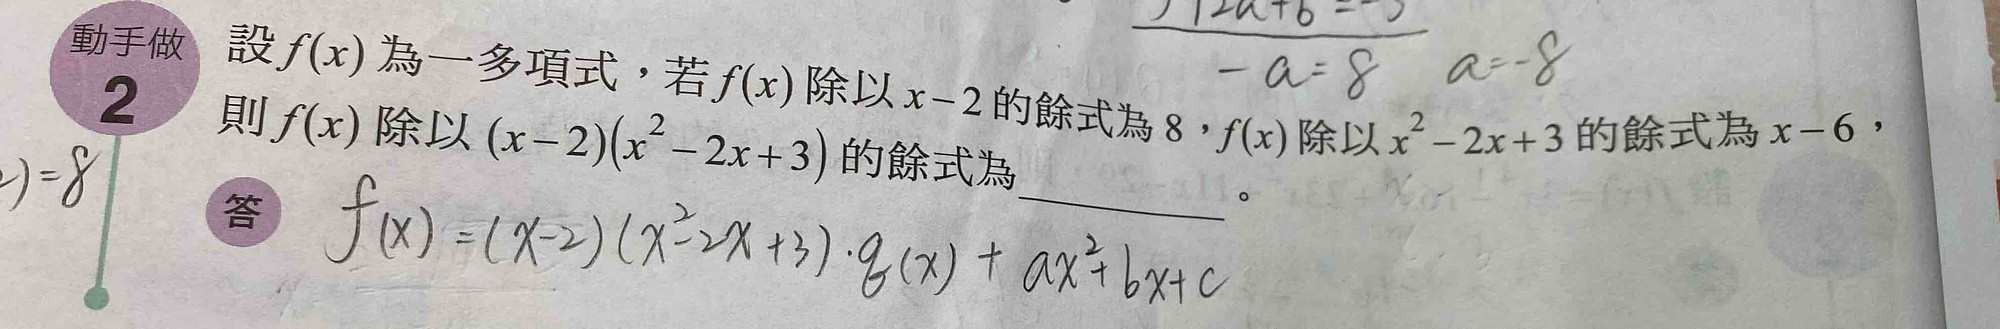 動手做 2
設 f(x) 為一多項式，若 f(x) 除以 x−2 的餘式為 8，f(x) 除以 x²−2x+3 的餘式為 x−6，
則 f(x) 除以 (x−2)(x²−2x+3) 的餘式為______。
答
f(x) = (x-2)(x²-2x+3)·q(x) + ax²+bx+c
)=8
-a=8 a=-8